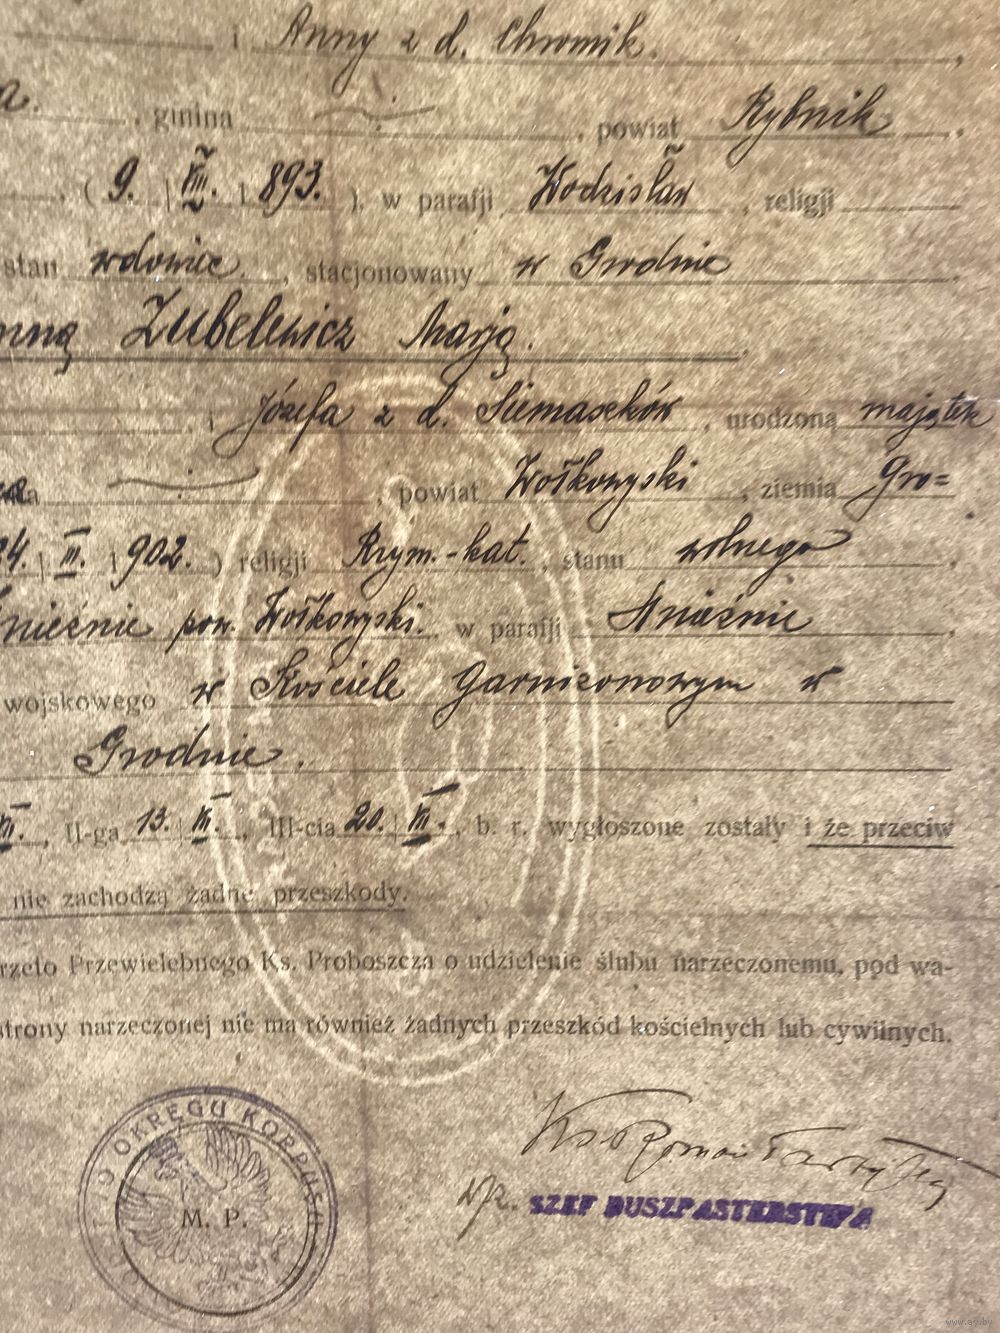 i Anny z d. Chromik.
, gmina , powiat Rybnik .
, ( 9. | VIII. 1 893. ), w parafji Wodzisław , religji
stan wdowiec , stacjonowany w Grodnie
nną Zubelewicz Marją.
i Józefa z d. Siemaszków , urodzoną majątek
, powiat Wołkowyski , ziemia Gro=
24. | III. 1 902. ) religji Rzym.-kat. , stanu wolnego ,
pow. Wołkowyski. w parafji ,
wojskowego w Kościele Garnizonowym w
Grodnie .
II-ga 13. , III-cia 20. , b. r. wygłoszone zostały i że przeciw
nie zachodzą żadne przeszkody.
rzeto Przewielebnego Ks. Proboszcza o udzielenie ślubu narzeczonemu, pod wa-
strony narzeczonej nie ma również żadnych przeszkód kościelnych lub cywilnych.
OKRĘGU KORPUSU
M. P.
wz. SZEF DUSZPASTERSTWA
www.ay.by